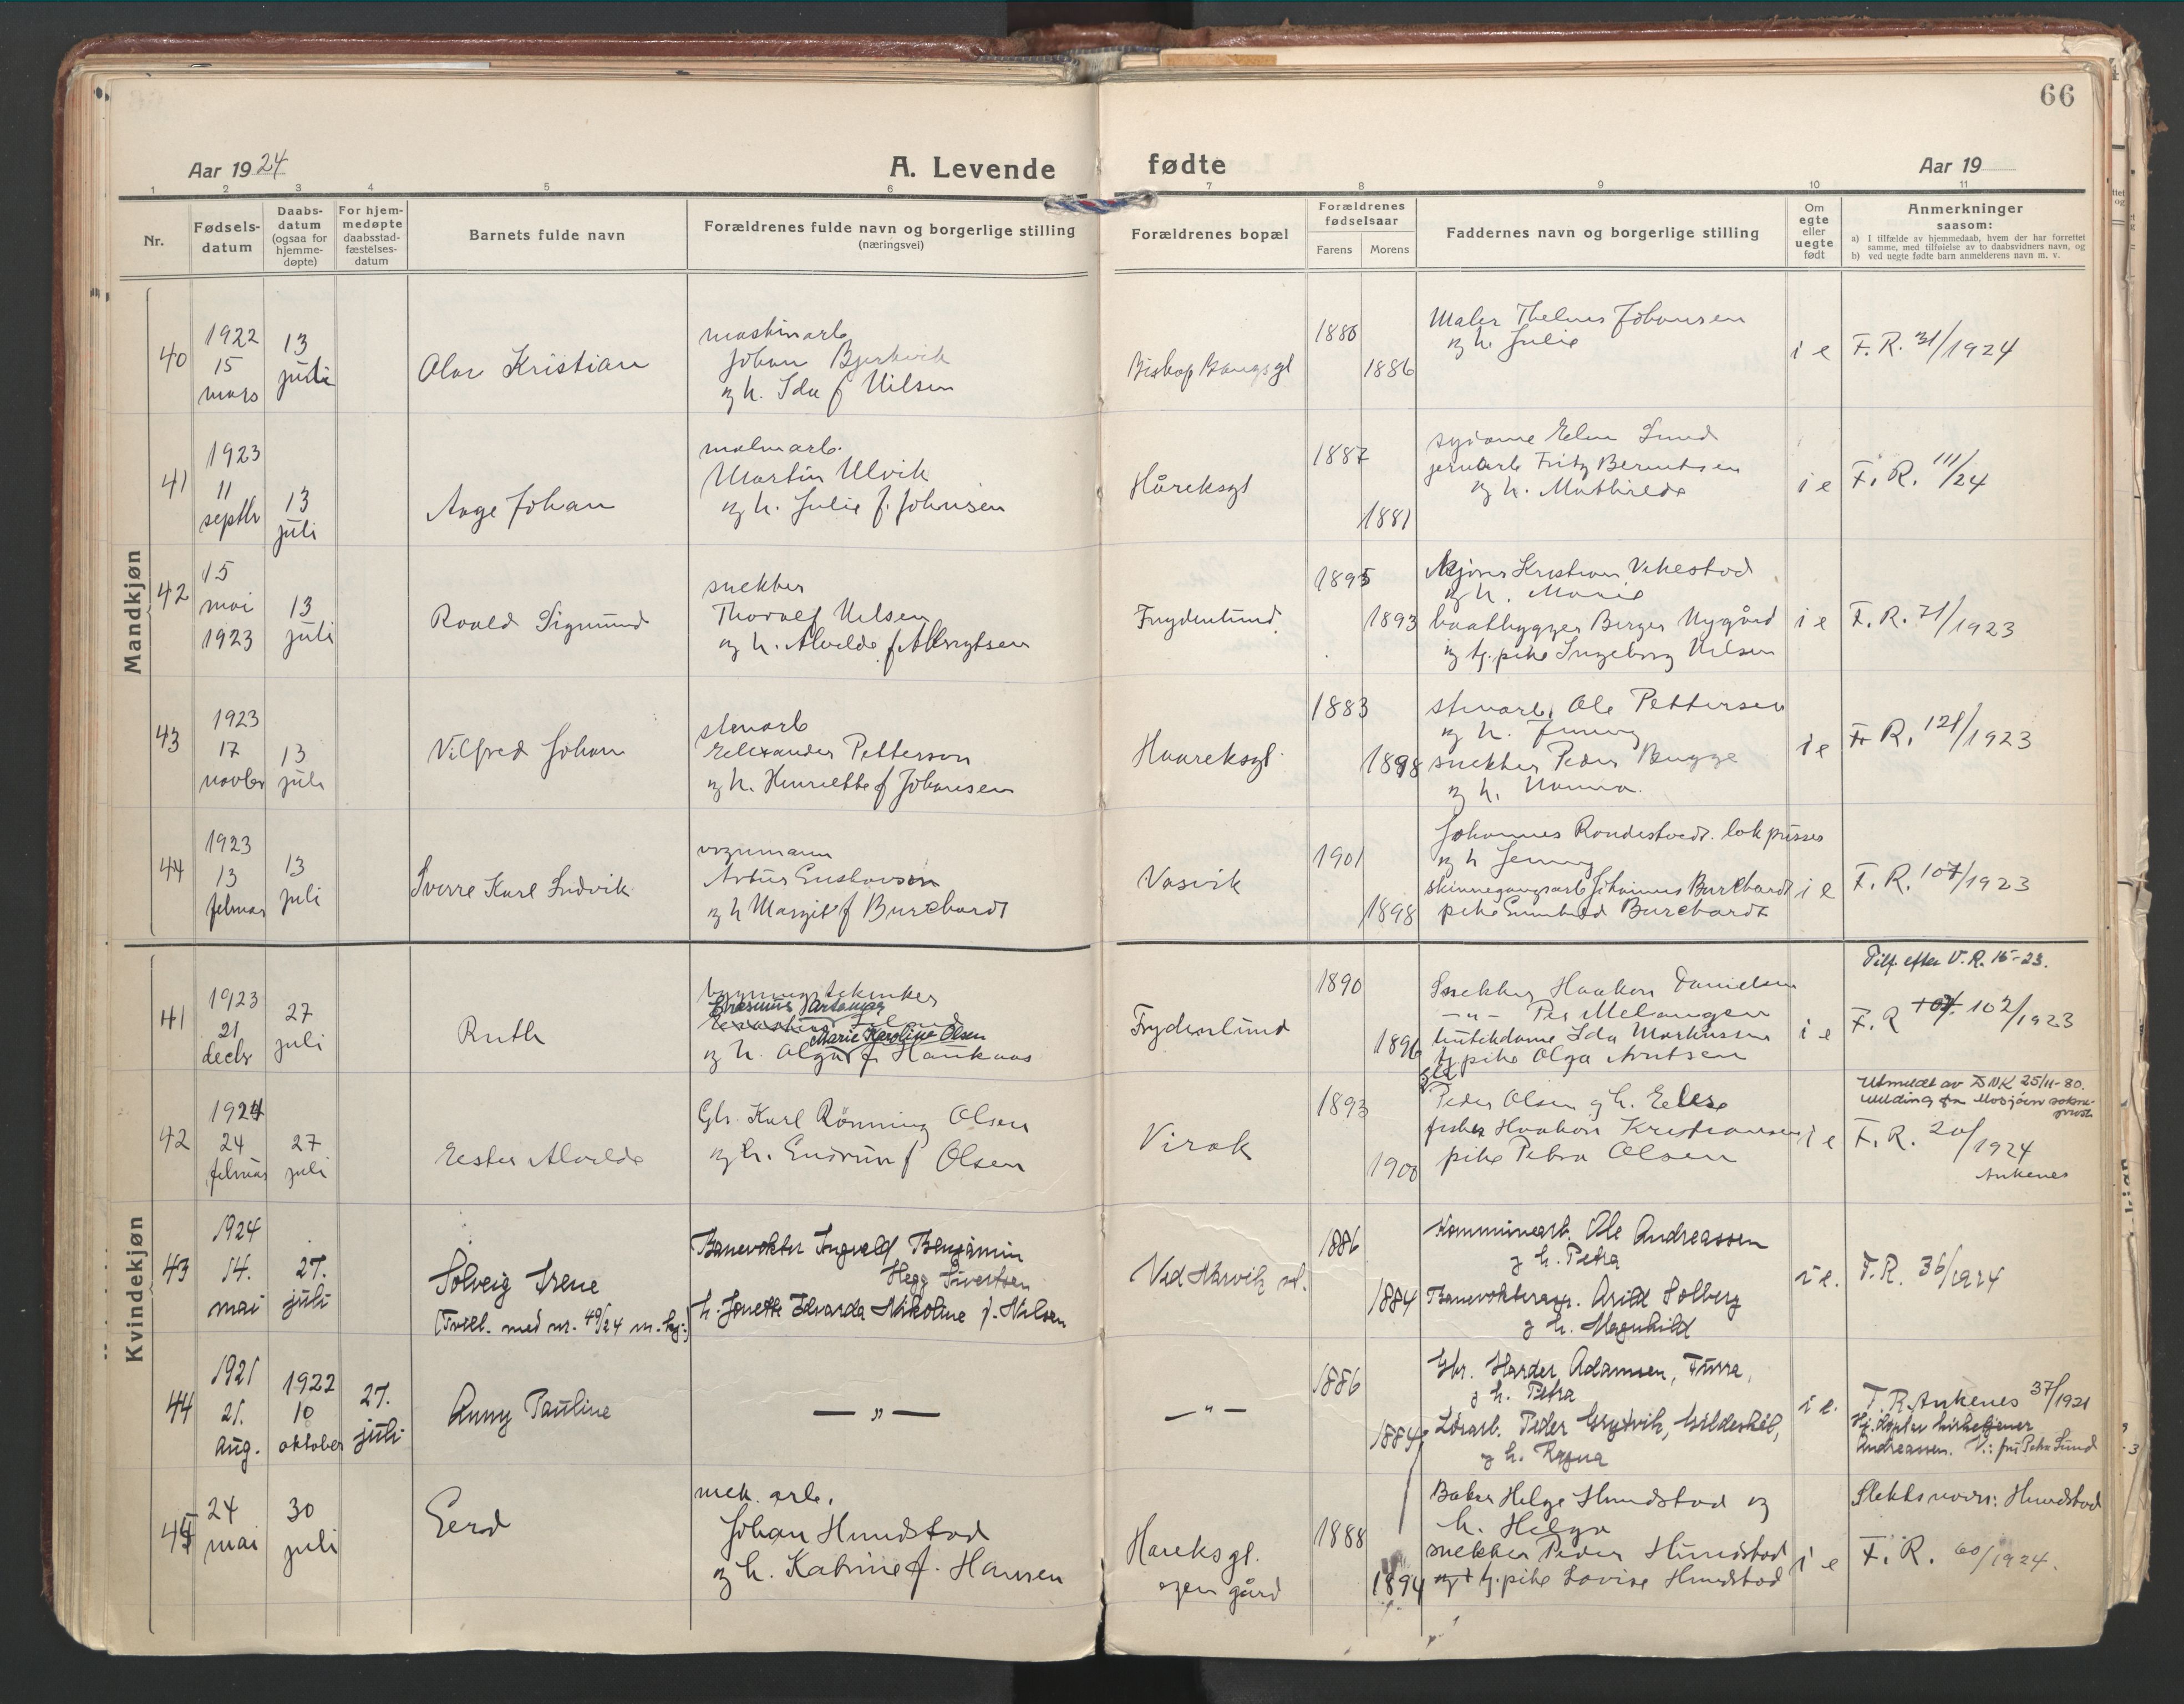 66
Aar 1924
A. Levende
fødte
Aar 19
1 2 3 4 5 6 7 8 9 10 11
Nr.
Fødsels-
datum
Daabs-
datum
(ogsaa for
hjemme-
døpte)
For hjem-
medøpte
daabsstad-
fæstelses-
datum
Barnets fulde navn
Forældrenes fulde navn og borgerlige stilling
(næringsvei)
Forældrenes bopæl
Forældrenes
fødselsaar
Farens
Morens
Faddernes navn og borgerlige stilling
Om
egte
eller
uegte
født
Anmerkninger
saasom:
a) I tilfælde av hjemmedaab, hvem der har forrettet
samme, med tilføielse av to daabsvidners navn, og
b) ved uegte fødte barn anmelderens navn m. v.
Mandkjøn
40
1922
15
mars
13
juli
Olav Kristian
maskinarb
Johan Bjerkvik
og h. Ida f Nilsen
Biskop Bangsgt
1886
Maler Thelmes Johansen
og h. Julie
i e
F. R. 31/1924
41
1923
11
septbr
13
juli
Aage Johan
malmarb.
Martin Ulvik
og h. Julie f. Johnsen
Håreksgt
1887
1881
sydame Elen Lund
jernarb Fritz Berntsen
og h. Mathilde
i e
F. R. 111/24
42
15
mai
1923
13
juli
Roald Sigmund
snekker
Thoralf Nilsen
og h. Alvilde f Albrigtsen
Frydenlund
1895
1893
Kristian Vikestad
og h. Marie
baatbygger Birger Nygård
og tj. pike Ingeborg Nilsen
i e
F. R. 71/1923
43
1923
17
novbr
13
juli
Vilfred Johan
stenarb
Elexander Petterson
og h. Henriette f Johansen
Haareksgt
1883
1898
stenarb. Ole Pettersen
og h. Jenny
snekker Peder Bugge
og h. Nanna.
i e
F. R. 121/1923
44
1923
13
februar
13
juli
Sverre Karl Ludvik
vognmann
Artur Gustavson
og h Margit f Burchardt
Vasvik
1901
1898
Johannes Rondestvedt. lok pusser
og h Jenny
skinnegangsarb Johannes Burchardt
pike Burchardt
i e
F. R. 107/1923
Kvindekjøn
41
1923
21
decbr
27
juli
Ruth
bygningstekniker
Marie Karoline Olsen
og h. Olga f. Haukaas
Frydenlund
1890
1896
Snekker Haakon Danielsen
-"- Per Melangen
butikdame Ida Markussen
tj. pike Olga Arntsen
i e
Tilf. efter V. R. 15-23.
F. R 102/1923
42
1924
24
februar
27
juli
Ester Alvilde
Gbr. Karl Rönning Olsen
og h. Gudrun f Olsen
Virak
1893
1900
Peder Olsen og h. Elise
fisker Haakon Kristiansen
pike Petra Olsen
i e
Utmeldt av DNK 25/11-80.
Melding fra Mosjøen sokne-
prest
F. R. 20/1924
Ankenes
43
1924
14.
mai
27.
juli
Solveig Irene
(Tvill. med nr. 49/24 m. kj.)
Banevokter Ingvald Benjamin
Hegg Sivertsen
h. Jonette Edvarda Nikoline f. Nilsen
Ved Narvik st.
1886
1884
Kommunearb. Ole Andreassen
g h. Petra
Banevokterasp. Arild Solberg
g h. Magnhild
i e.
F. R. 36/1924
44
1921
21.
aug.
1922
10
oktober
27.
juli
Anny Pauline
— " —
— " —
1886
1884
Gbr. Harder Adamsen, Furra,
g h. Petra
Lösarb. Peder Grytvik, Gildeskål,
g h. Ragna
i e.
F. R. Ankenes 37/1921
Hj. døpt av kirketjener
Andreassen. V.: fru Petra Lund
45
24
mai
30
juli
Gerd
mek. arb.
Johan Hundstad
og h. Katrine f. Hansen
Hareksgt.
egen gård
1888
1894
Baker Helge Hundstad og
h. Helga
snekker Peder Hundstad
og tj. pike Lovise Hundstad
i e
Slektsnavn: Hundstad
F. R. 60/1924.